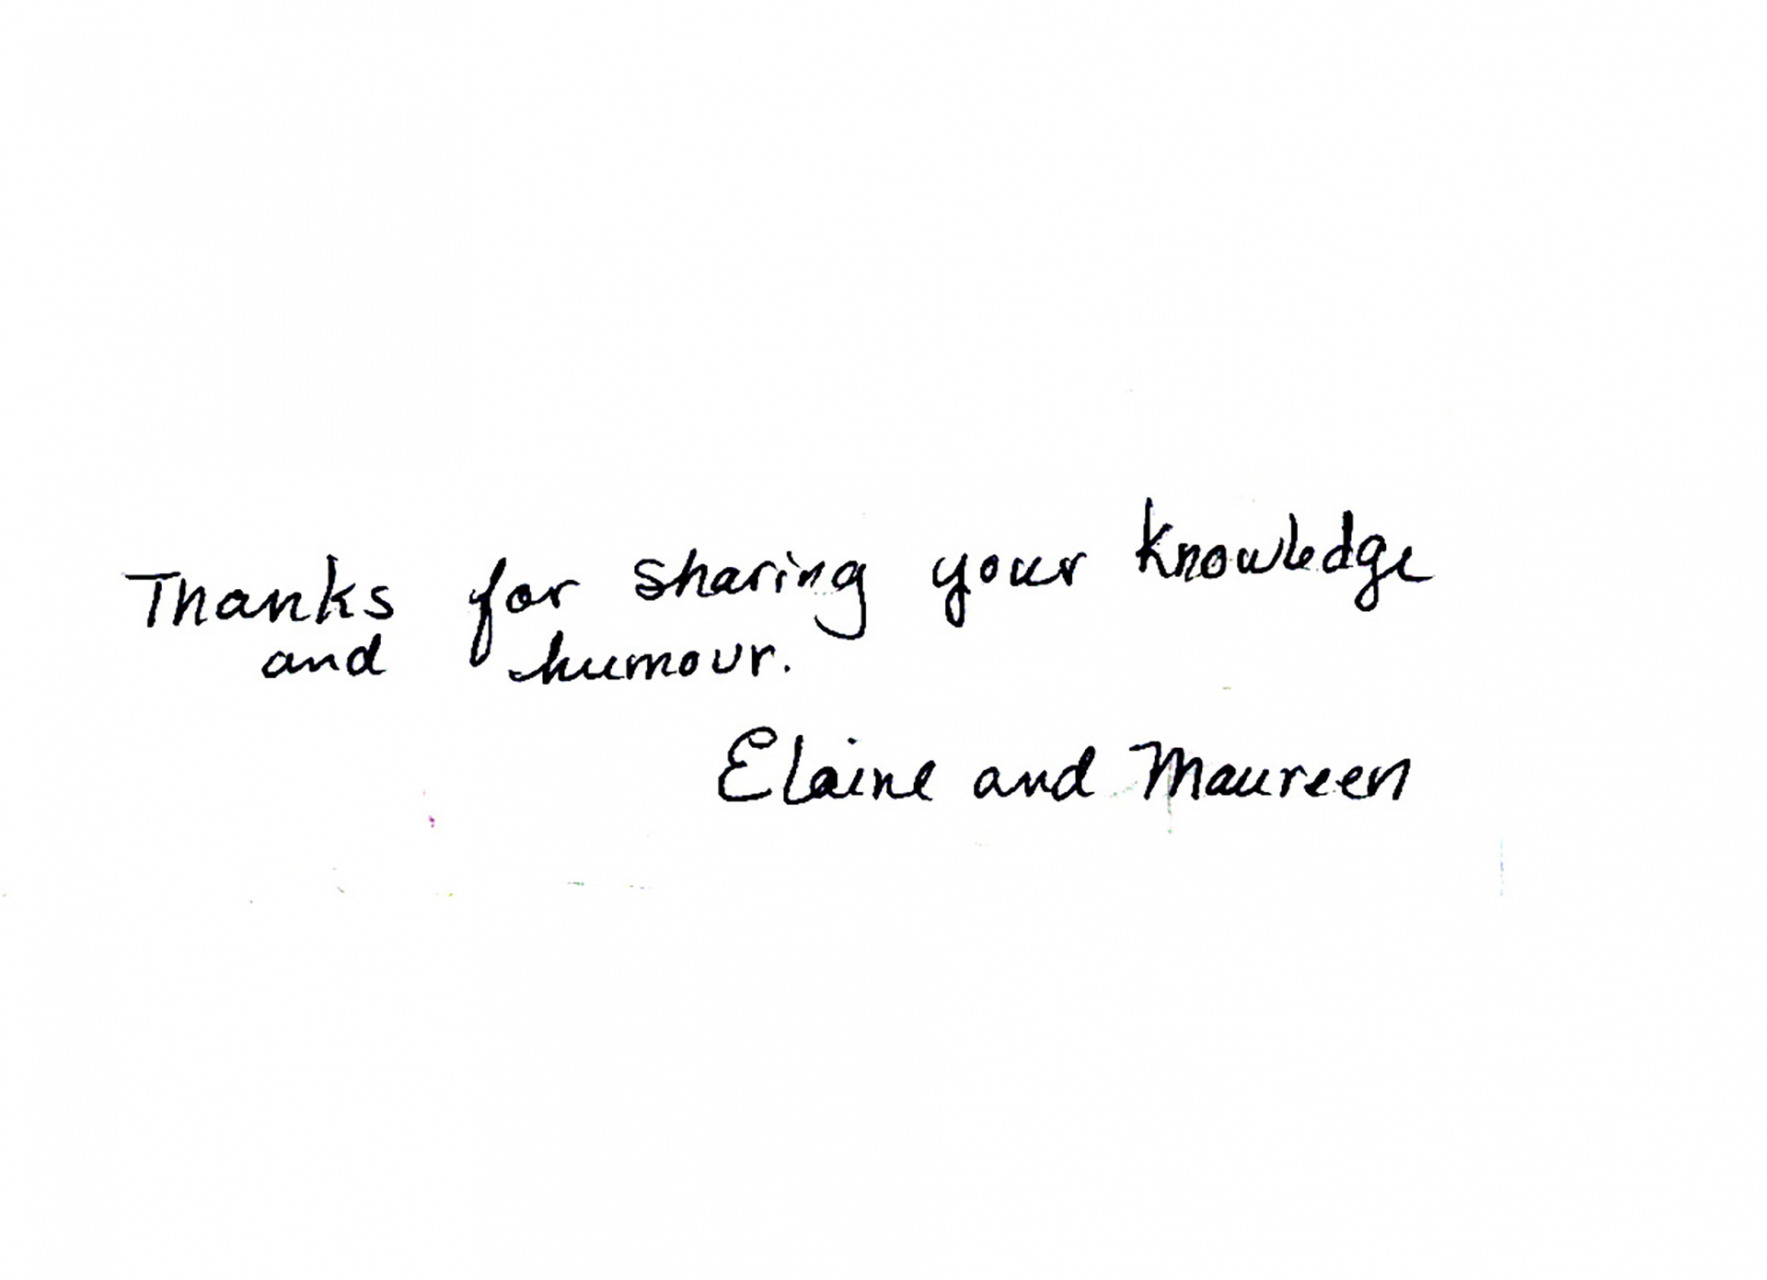 Thanks for sharing your knowledge
and humour.
Elaine and Maureen